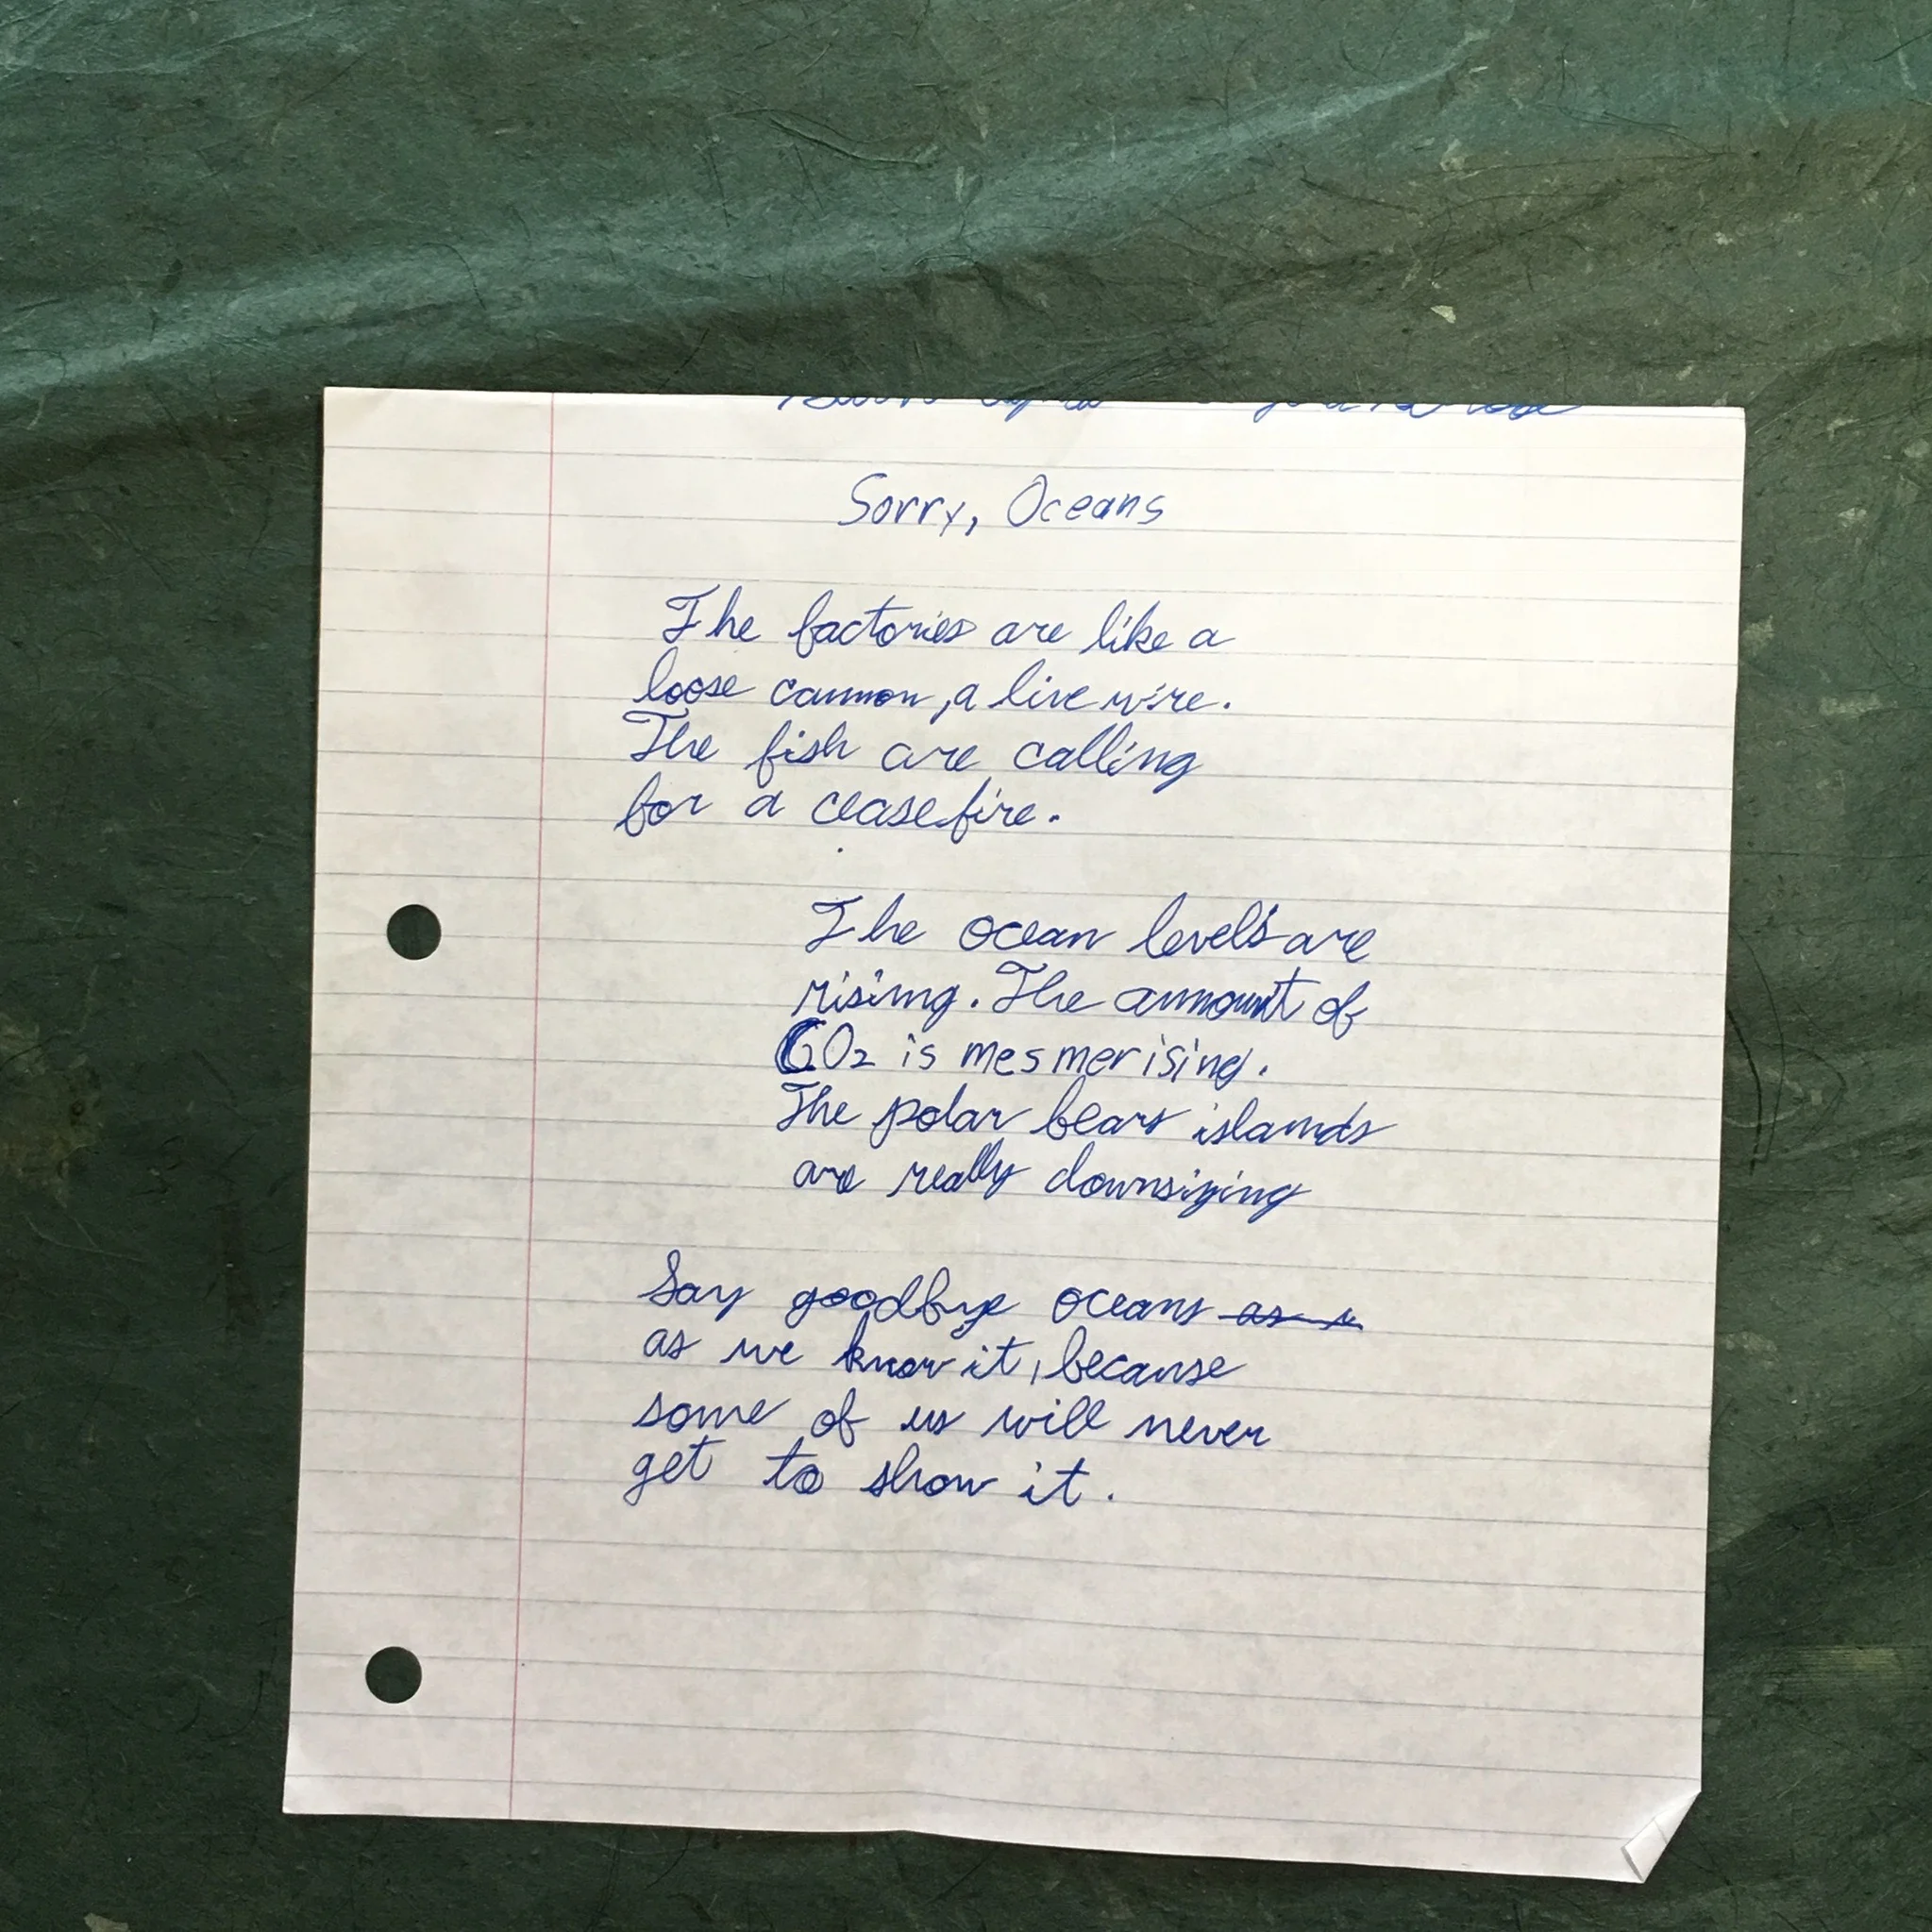 Sorry, Oceans
The factories are like a
loose cannon, a live wire.
The fish are calling
for a ceasefire.
The ocean levels are
rising. The ammount of
CO2 is mesmerising.
The polar bears islands
are really downsizing
Say goodbye oceans as
as we know it, because
some of us will never
get to show it.